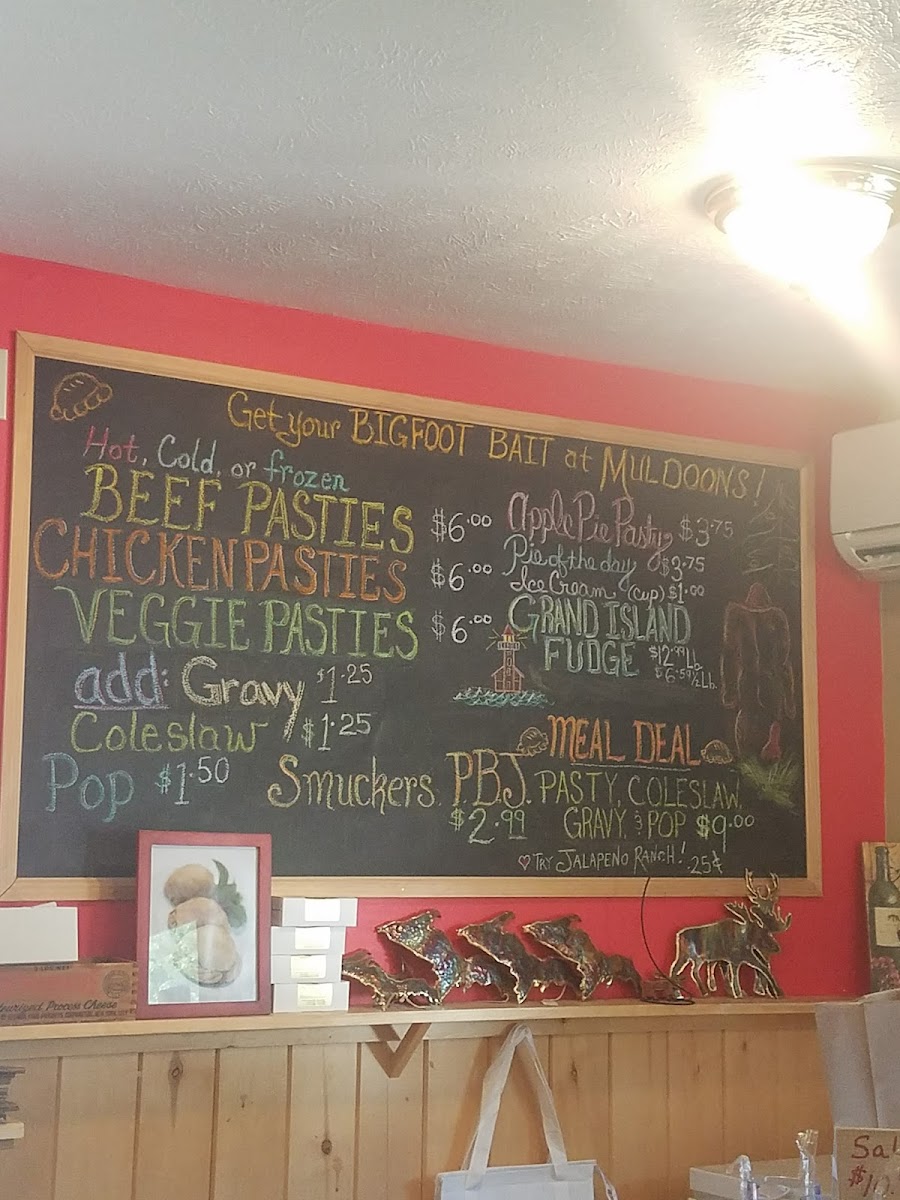 Get your BIGFOOT BAIT at MULDOONS!
Hot, Cold, or frozen
BEEF PASTIES $6.00
CHICKEN PASTIES $6.00
VEGGIE PASTIES $6.00
add: Gravy $1.25
Coleslaw $1.25
Pop $1.50
Smuckers P.B.J.
$2.99
Apple Pie Pasty $3.75
Pie of the day $3.75
Ice Cream (cup) $1.00
GRAND ISLAND
FUDGE $12.99 Lb.
$6.59 ½ Lb.
MEAL DEAL
PASTY, COLESLAW,
GRAVY, & POP $9.00
TRY JALAPENO RANCH! .25¢
Process Cheese
Sal
$10.